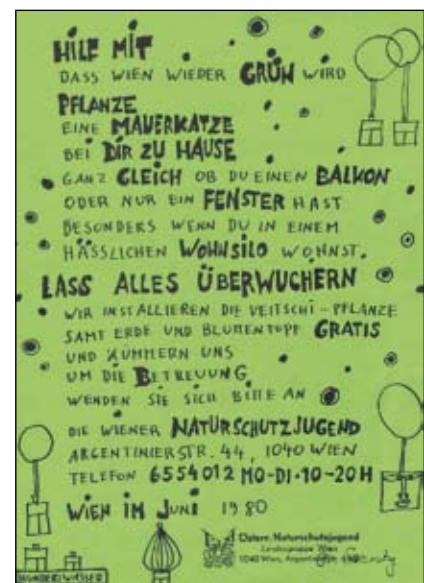 HILF MIT
DASS WIEN WIEDER GRÜN WIRD
PFLANZE
EINE MAUERKATZE
BEI DIR ZU HAUSE
GANZ GLEICH OB DU EINEN BALKON
ODER NUR EIN FENSTER HAST
BESONDERS WENN DU IN EINEM
HÄSSLICHEN WOHNSILO WOHNST.
LASS ALLES ÜBERWUCHERN
WIR INSTALLIEREN DIE VEITSCHI-PFLANZE
SAMT ERDE UND BLUMENTOPF GRATIS
UND KÜMMERN UNS
UM DIE BETREUUNG
WENDEN SIE SICH BITTE AN
DIE WIENER NATURSCHUTZJUGEND
ARGENTINIERSTR. 44, 1040 WIEN
TELEFON 6554012 MO-DI-10-20H
WIEN IM JUNI 1980
Österr. Naturschutzjugend
Landesgruppe Wien
1040 Wien,